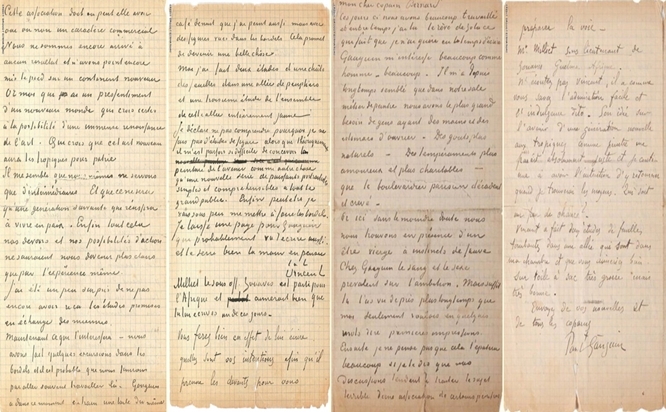 Cette association dont on peut elle avoir
oui ou non un caractère commercial
Nous ne sommes encore arrivé à
aucun résultat et n'avons point encore
mis le pied sur un continent nouveau
Or moi qui ai un pressentiment
d'un nouveau monde qui crois certes
à la possibilité d'une immense renaissance
de l'art. Qui crois que cet art nouveau
aura les tropiques pour patrie
Il me semble que nous-mêmes ne servons
que d'intermédiaires. Et que ce ne sera
qu'une génération suivante qui réussira
à vivre en paix. Enfin tout cela
nos devoirs et nos possibilités d'action
ne sauraient nous devenir plus clairs
que par l'expérience même
J'ai été un peu surpris de ne pas
encore avoir reçu les études promises
en échange des miennes
Maintenant ce qui t'intéressera – nous
avons fait quelques excursions dans les
bordels et il est probable que nous finirons
par aller souvent travailler là. Gauguin
a dans ce moment en train une toile du même
café de nuit que j'ai peint aussi mais avec
des figures vues dans les bordels. Cela promet
de devenir une belle chose
Moi j'ai fait deux études d'une chute
des feuilles dans une allée de peupliers
et une troisième étude de l'ensemble
de cette allée entièrement jaune
Je déclare ne pas comprendre pourquoi je ne
fais pas d'études de figure alors que théoriquement
il m'est parfois si difficile de concevoir la
peinture de l'avenir comme autre chose
qu'une nouvelle série de portraitistes puissants
simples et compréhensibles à tout le
grand public. Enfin peut-être je
vais sous peu me mettre à faire les bordels.
Je laisse une page pour Gauguin
qui probablement va t'écrire aussi
et te serre bien la main en pensée
t. à t.
Vincent
Milliet le sous off. Zouaves est parti pour
l'Afrique et aimerait bien que
tu lui écrives un de ces jours.
Vous ferez bien en effet de lui écrire
quelles sont vos intentions afin qu'il
prenne les devants pour vous
mon cher copain Bernard
Ces jours ci nous avons beaucoup travaillé
et entretemps j'ai lu le rêve de Zola ce
qui fait que je n'ai guère eu le temps d'écrire
Gauguin m'intéresse beaucoup comme
homme – beaucoup. Il m'a depuis
longtemps semblé que dans notre sale
métier de peintre nous avons le plus grand
besoin de gens ayant des mains et des
estomacs d'ouvrier. Des goûts plus
naturels – Des tempéraments plus
amoureux et plus charitables
que le boulevardier parisien décadent
et crevé.
Or ici sans le moindre doute nous
nous trouvons en présence d'un
être vierge à instincts de sauvage
Chez Gauguin le sang et le sexe
prévalent sur l'ambition. Mais suffit
tu l'as vu de près plus longtemps que
moi seulement voulais en quelques
mots dire premières impressions.
Ensuite je ne pense pas que cela t'épatera
beaucoup si je te dis que nos
discussions tendent à traiter le sujet
terrible d'une association de certains peintres
préparer la voie.
Mr Milliet sous lieutenant de
Zouaves Guelma Afrique
N'écoutez pas Vincent, il a comme
vous savez l'admiration facile et
l'indulgence dito. Son idée sur
l'avenir d'une génération nouvelle
aux tropiques comme peintre me
paraît absolument juste et je continue
à avoir l'intention d'y retourner
quand je trouverai les moyens. Qui sait
un peu de chance?
Vincent a fait deux études de feuilles
tombantes dans une allée qui sont dans
ma chambre et que vous aimeriez bien
Sur toile à sac très grosse mais
très bonne.
Envoyez de vos nouvelles et
de tous les copains
Paul Gauguin